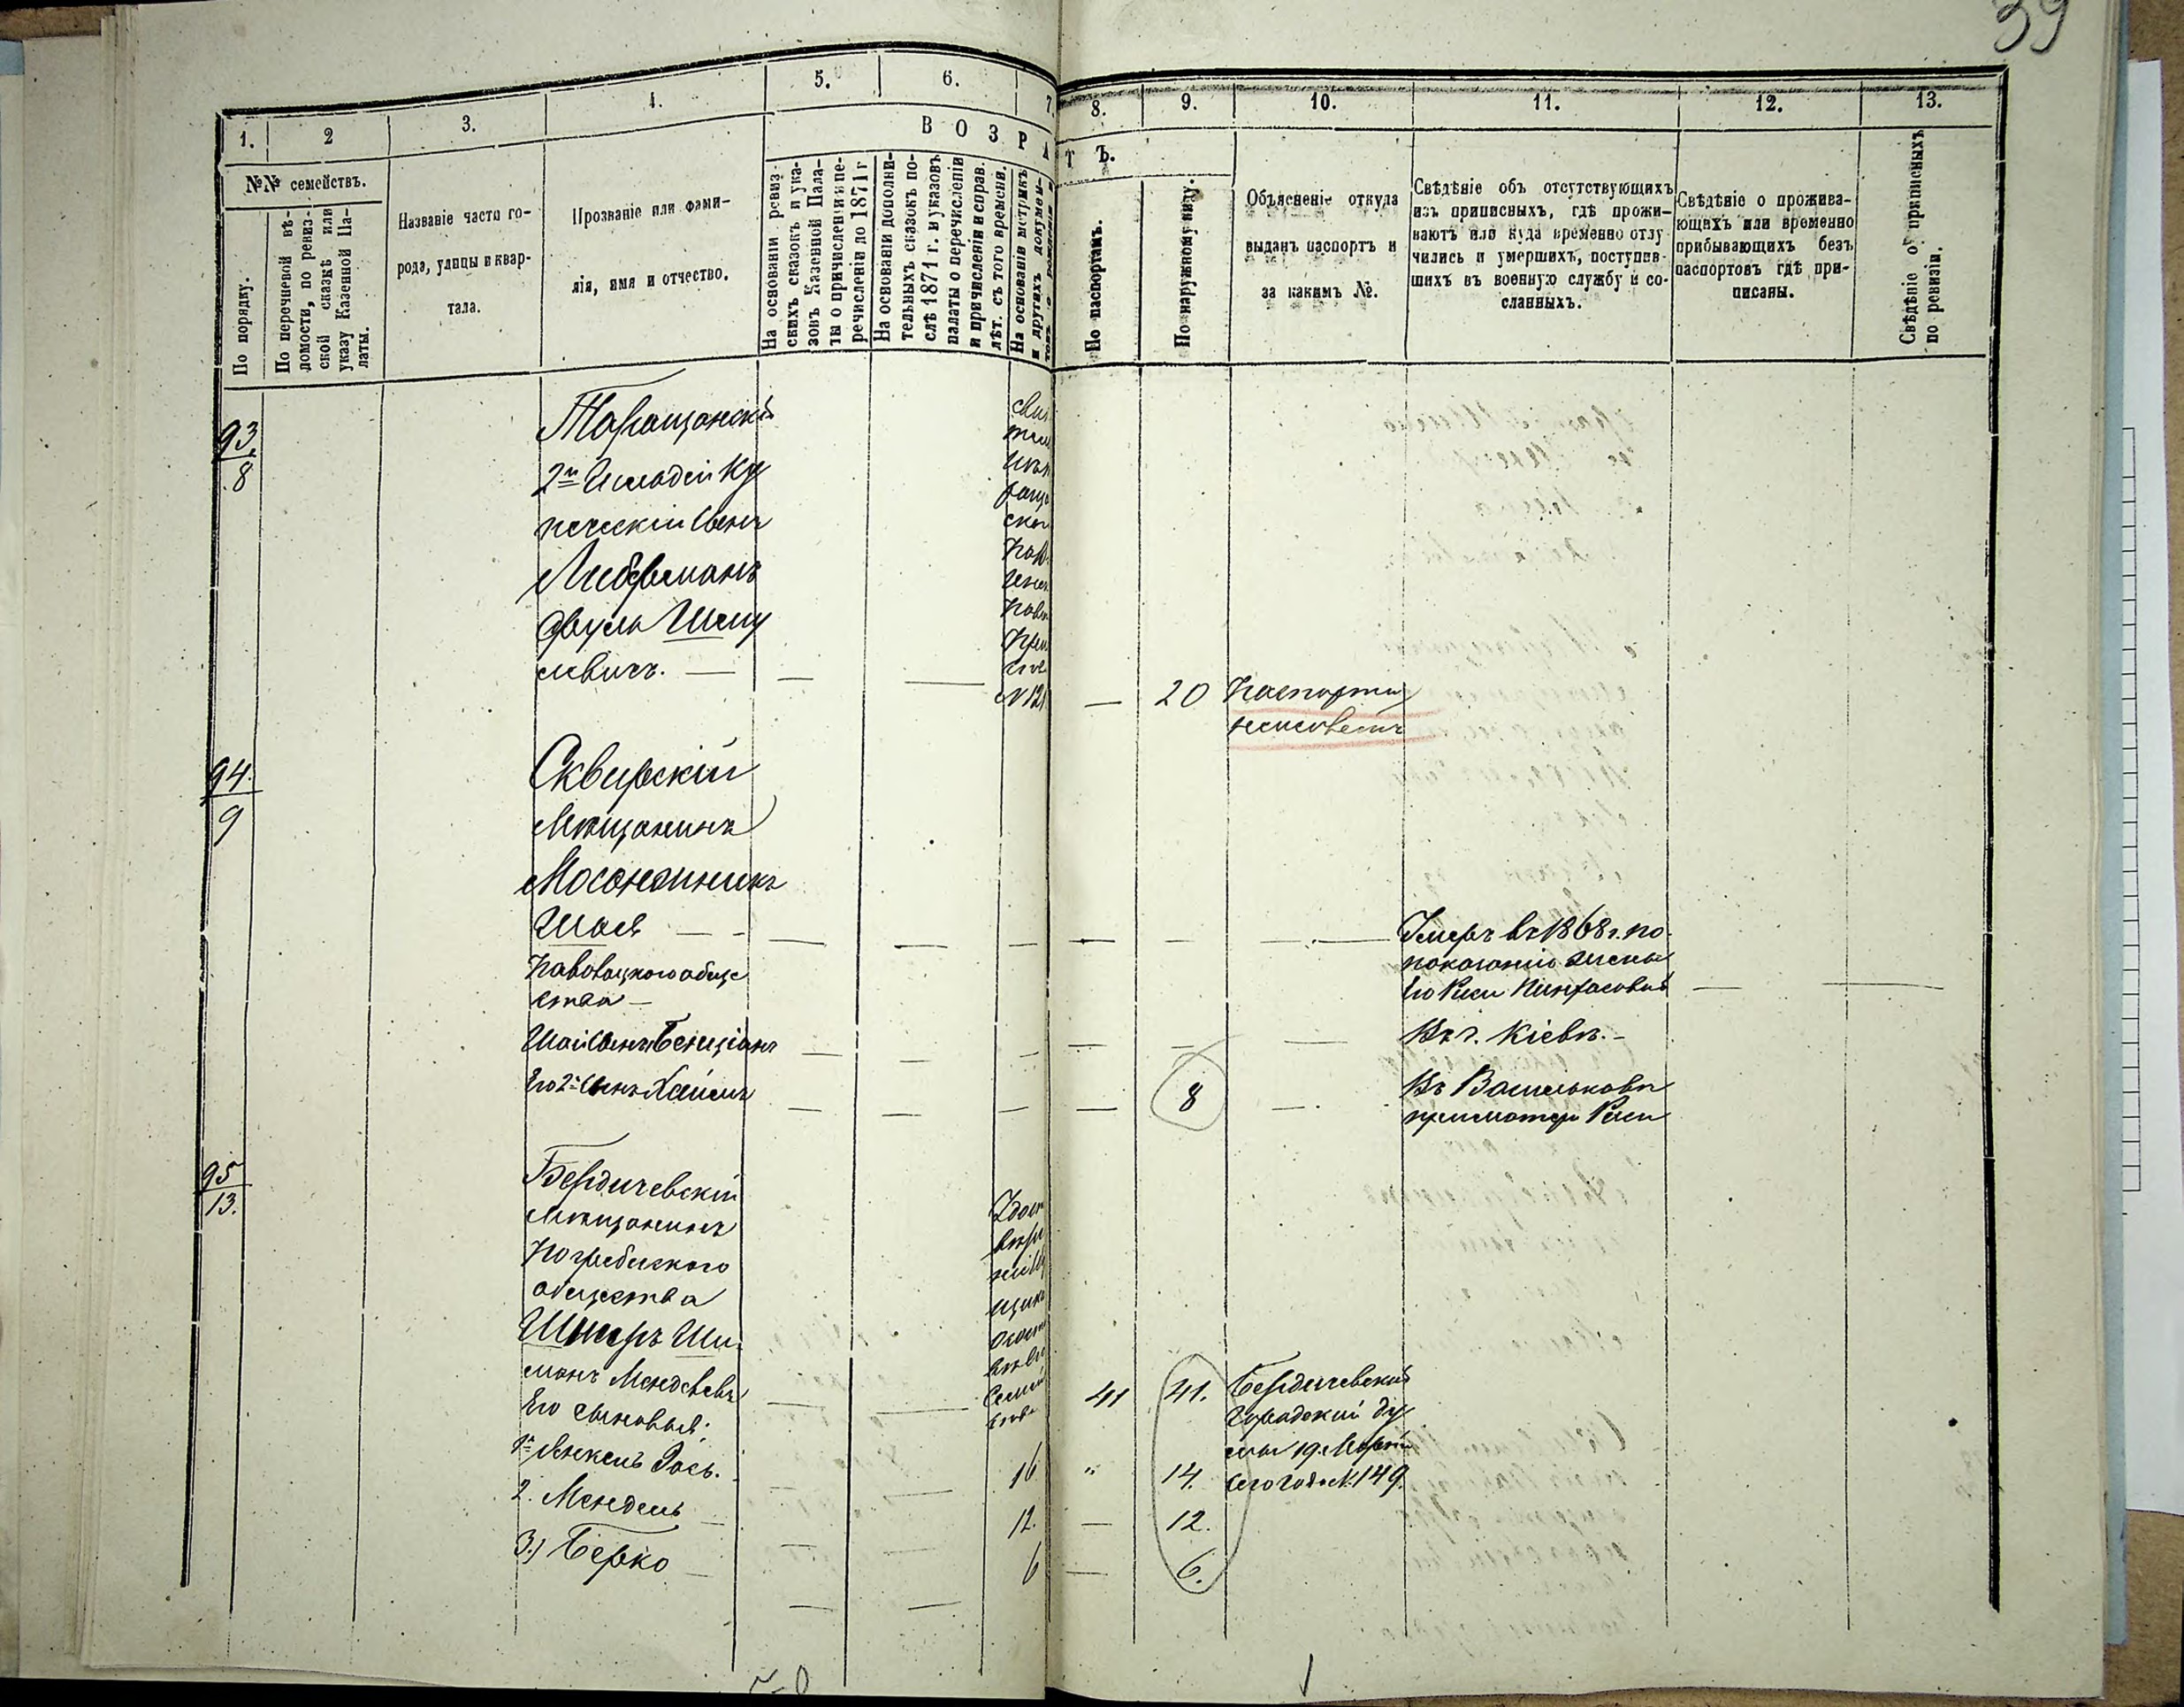 39
1. 2 3. 4. 5. 6. 7
8. 9. 10. 11. 12. 13.
ВОЗРА
ТЪ.
№№ семействъ.
По порядку.
По перечневой вѣ-
домости, по ревиз-
ской сказкѣ или
указу Казенной Па-
латы.
Названіе части го-
рода, улицы и квар-
тала.
Прозваніе или фами-
лія, имя и отчество.
На основаніи ревиз-
скихъ сказокъ и ука-
зовъ Казенной Пала-
ты о причисленіи и пе-
речисленіи до 1871 г
На основаніи дополни-
тельныхъ сказокъ по-
слѣ 1871 г. и указовъ
палаты о перечисленіи
и причисленіи и справ.
лѣт. съ того времени.
На основаніи метрикъ
и другихъ докумен-
По паспортамъ.
По наружному виду.
Объясненіе откуда
выданъ паспортъ и
за какимъ №.
Свѣдѣніе объ отсутствующихъ
изъ приписныхъ, гдѣ прожи-
ваютъ или куда временно отлу
чились и умершихъ, поступив-
шихъ въ военную службу и со-
сланныхъ.
Свѣдѣніе о прожива-
ющихъ или временно
прибывающихъ безъ
паспортовъ гдѣ при-
писаны.
Свѣдѣніе о приписныхъ
по ревизіи.
93
8
Таращанскій
2й Гильдіи Ку
печескій Сынъ
Либерманъ
Сруль Шму
левичъ. —
№ 12
— 20 Паспортъ
94.
9
Сквирскій
Мѣщанинъ
Мосонжникъ
Шая
Паволоцкаго обще
ства —
Умеръ въ 1868 г. по
показанію жены
Его Рыси Пинхасовны
Шаи Сынъ Бенціонъ
Въ г. Кіевѣ. -
Его 2й Сынъ Хаимъ
8
Въ Васильковѣ
при матери Рыси
95
13.
Бердичевскій
Мѣщанинъ
Погребискаго
общества
Шнеръ Ши
манъ Менделевъ
41 41. Бердичевской
Городской Ду
мы 19. Марта
сего года № 149.
Его сыновья:
1й Янкель Іось. 16 " 14.
2. Мендель 12. — 12.
3.) Берко 6 — 6.